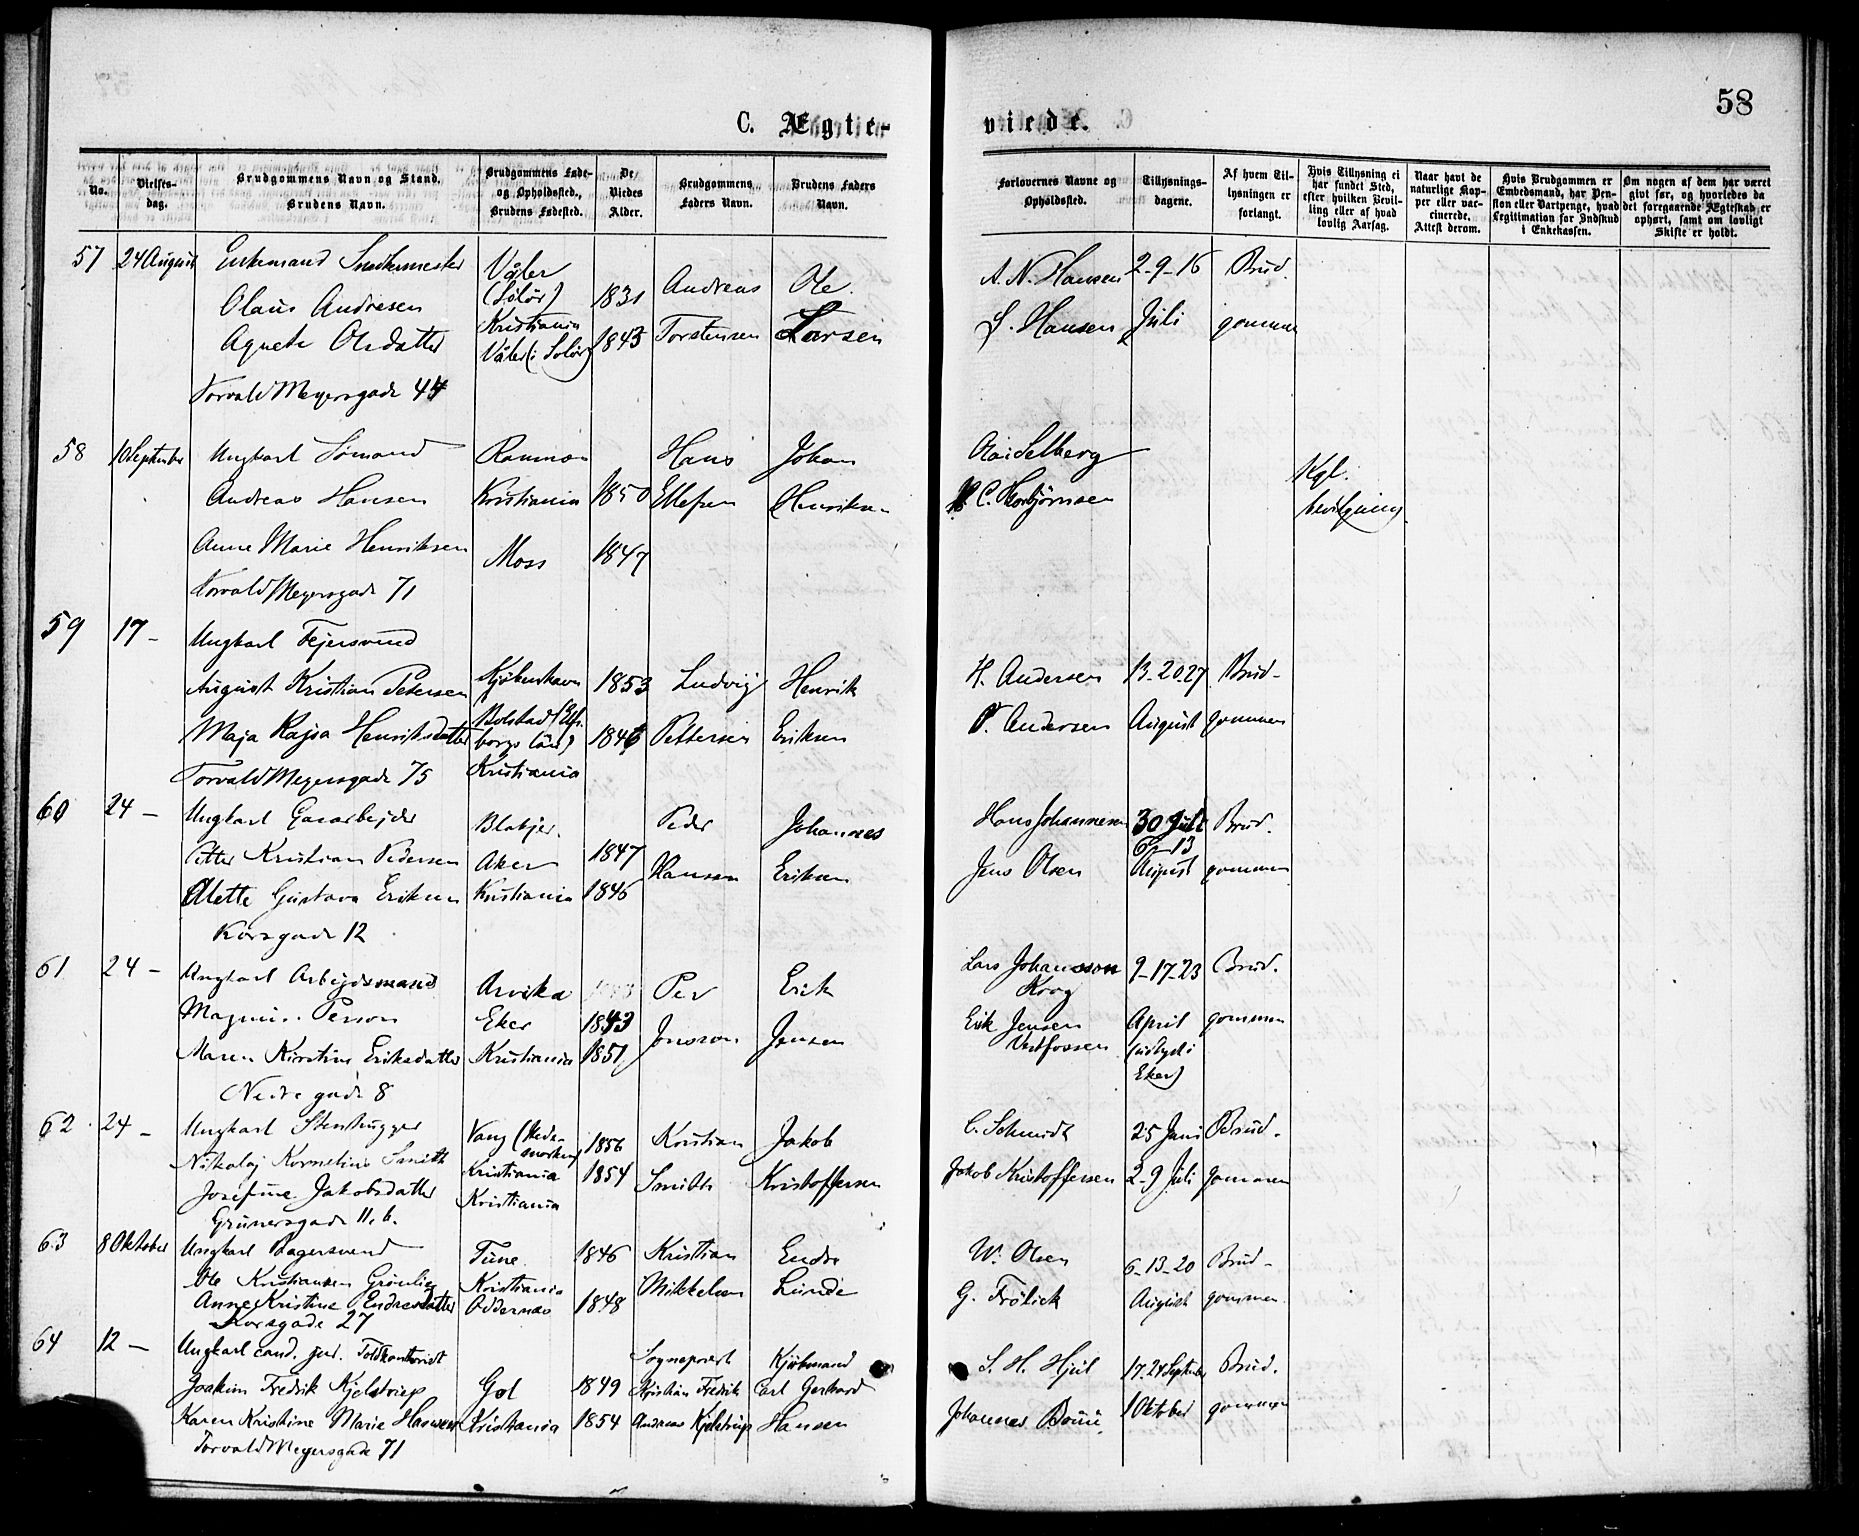 58
C. Ægte-
viede.
No.
Vielses-
dag.
Brudgommens Navn og Stand.
Brudens Navn.
Brudgommens Føde-
og Opholdssted.,
Brudens Fødested.
De
Viedes
Alder.
Brudgommens
Faders Navn.
Brudens Faders
Navn.
Forlovernes Navne og
Opholdssted.
Tillysnings-
dagene.
Af hvem Til-
lysningen er
forlangt.
Hvis Tillysning ei
har fundet Sted,
efter hvilken Bevil-
ling eller af hvad
lovlig Aarsag.
Naar havt de
naturlige Kop-
per eller vac-
cinerede.
Attest derom.
Hvis Brudgommen er
Embedsmand, har Pen-
sion eller Vartpenge, hvad
Legitimation for Indskud
i Enkekassen.
Om nogen af dem har været
givt før, og hvorledes da
det foregaaende Ægteskab er
ophørt, samt om lovligt
Skifte er holdt.
57 24 August Enkemand Snedkermester Våler Andreas Ole A. N. Hansen 2-9-16 Brud-
Olaus Andresen (Solør) 1831
Agnete Olsdatter Kristiania Våler (i Solør) 1843 Torstensen Larsen L. Hansen Juli gommen
Torvald Meyersgade 44
58 10 September Ungkarl Sømand Hans Johan Selberg Kgl.
Andreas Hansen Kristiania 1850 Ellefsen Henriksen C. Thorbjørnsen bevilgning
Anne Marie Henriksen Moss 1847
Torvald Meyersgade 71
59 17 - Ungkarl Fejersvend
August Kristian Petersen Kjøbenhavn 1853 Ludvig Henrik H. Andersen 13-20-27 Brud-
Maja Kajsa Henriksdatter Bolstad (Elfs-
borgs län) 1846 Pettersen Eriksen P. Andersen August gommen
Torvald Meyersgade 75 Kristiania
60 24 - Ungkarl Gasarbejder Blakjer Peder Johannes Hans Johannesen 30 Juli Brud-
Petter Kristian Pedersen Aker 1847 Hansen Eriksen Jens Olsen 6-13 August gommen
Mette Gustava Eriksen Kristiania 1846
Korsgade 12
61 24 - Ungkarl Arbejdsmand Arvika Per Erik Lars Johansson 9-17-23 Brud-
Krog
Magnus Person Eker 1843 Jonsson Jensen Erik Jensen April gommen
Maren Kirstine Eriksdatter Kristiania 1851 Vestfossen (udlyst i
Eker)
Nedre gade 8
62 24 - Ungkarl Stenhugger Vang (Hede-
marken) 1856 Kristian Jakob C. Schmidt 25 Juni Brud-
Nikolaj Kornelius Smith Kristiania 1854 Smith Kristoffersen Jakob Kristoffersen 2-9 Juli gommen
Josefine Jakobsdatter Kristiania
Grünersgade 11. b.
63 8 Oktober Ungkarl Bagersvend Tune 1846 Kristian Endre W. Olsen 6-13-20 Brud-
Ole Kristiansen Grønlie Kristiania Mikkelsen Lunde G. Frölich August gommen
Anne Kristine Endresdatter Oddernes 1848
Korsgade 27
64 12 - Ungkarl cand. jur. Toldkontorist Sogneprest Kjøbmand S. H. Hjul 17-24 September Brud-
Joakim Fredrik Kjelstrup Gol 1849 Kristian Fredrik Carl Gerhard
Karen Kristine Marie Hansen Kristiania 1854 Andreas Kjelstrup Hansen Johannes 1 Oktober gommen
Torvald Meyersgade 71